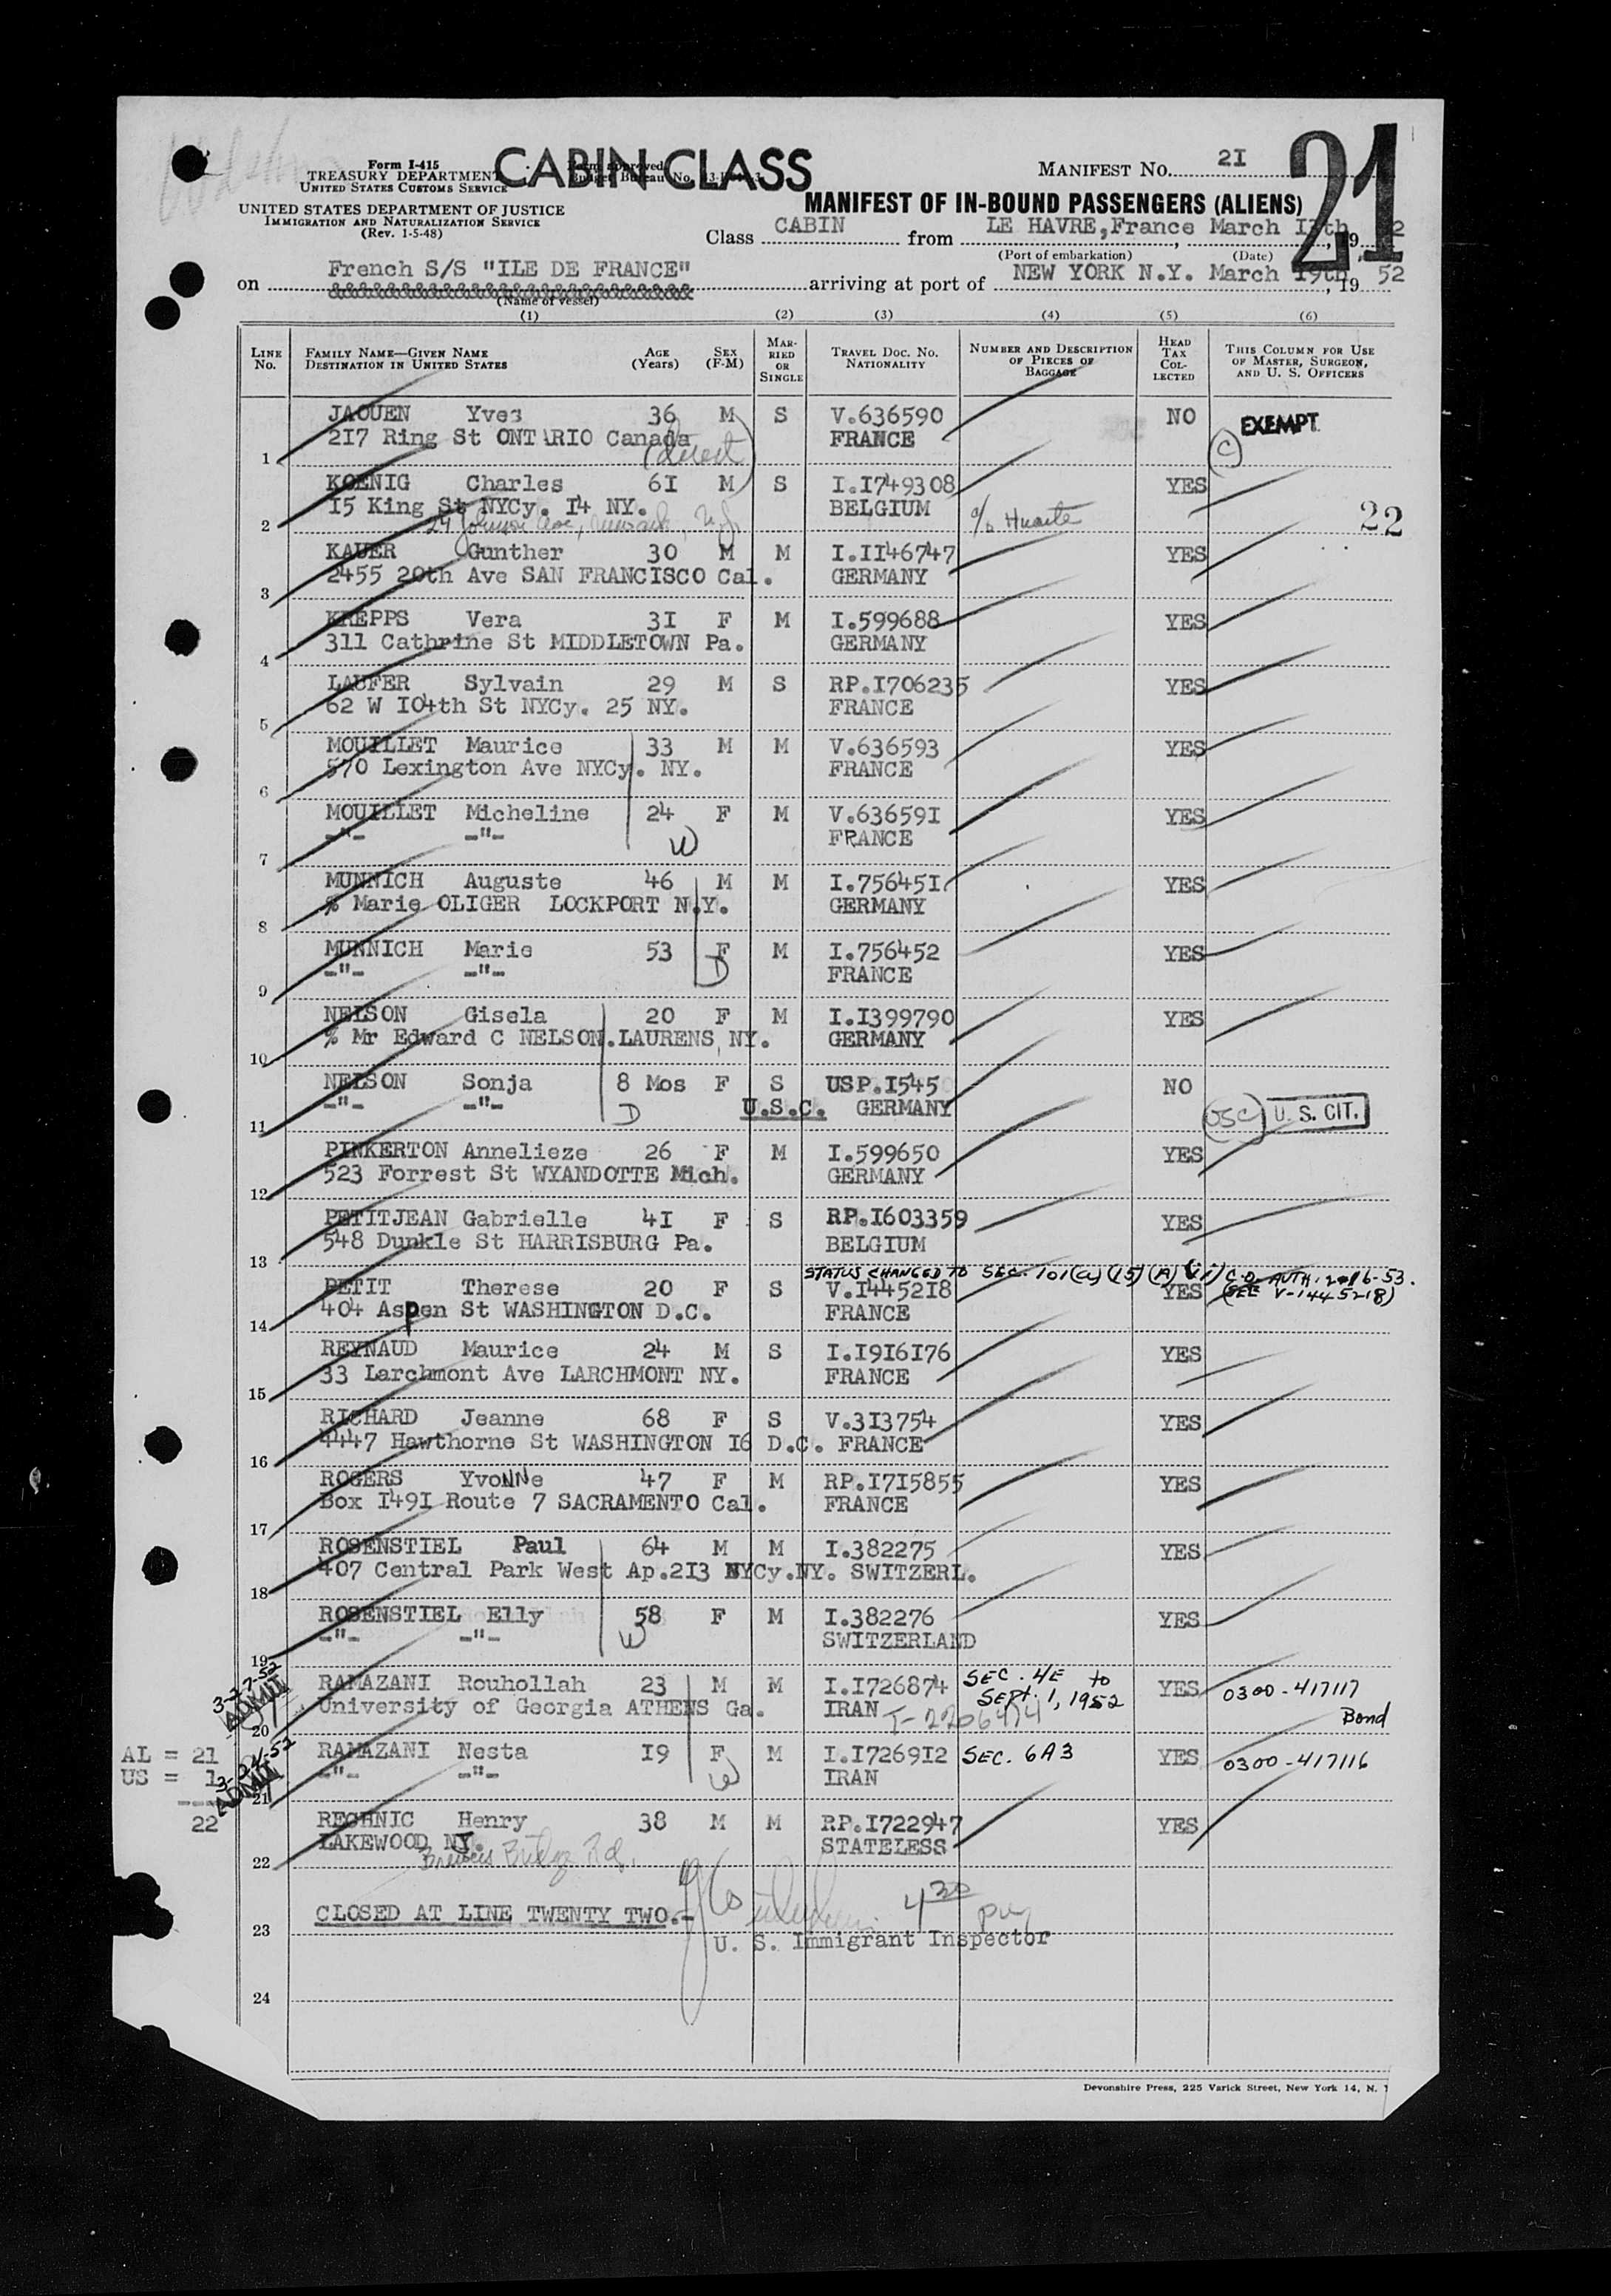 Form I-415
TREASURY DEPARTMENT
UNITED STATES CUSTOMS SERVICE
CABIN CLASS
Form approved
Budget Bureau No.
MANIFEST NO. 2I
21
UNITED STATES DEPARTMENT OF JUSTICE
IMMIGRATION AND NATURALIZATION SERVICE
(Rev. 1-5-48)
MANIFEST OF IN-BOUND PASSENGERS (ALIENS)
Class CABIN from LE HAVRE, France March , 19 2
(Port of embarkation) (Date)
on French S/S "ILE DE FRANCE" arriving at port of NEW YORK N.Y. March I9th, 19 52
(Name of vessel)
(1) (2) (3) (4) (5) (6)
LINE No. FAMILY NAME—GIVEN NAME DESTINATION IN UNITED STATES AGE (Years) SEX (F-M) MARRIED OR SINGLE TRAVEL DOC. NO. NATIONALITY NUMBER AND DESCRIPTION OF PIECES OF BAGGAGE HEAD TAX COLLECTED THIS COLUMN FOR USE OF MASTER, SURGEON, AND U. S. OFFICERS
JAOUEN Yves 36 M S V.636590 NO EXEMPT
1 2I7 Ring St ONTARIO Canada FRANCE C
(direct)
KOENIG Charles 6I M S I.I749308 YES
2 I5 King St NYCy. I4 NY. BELGIUM 22
24 Johnson Ave, Newark, N.J. c/o Huarte
KAUER Gunther 30 M M I.II46747 YES
3 2455 20th Ave SAN FRANCISCO Cal. GERMANY
KREPPS Vera 3I F M I.599688 YES
4 311 Cathrine St MIDDLETOWN Pa. GERMANY
LAUFER Sylvain 29 M S RP.I706235 YES
5 62 W I04th St NYCy. 25 NY. FRANCE
MOUILLET Maurice 33 M M V.636593 YES
6 570 Lexington Ave NYCy. NY. FRANCE
MOUILLET Micheline 24 F M V.63659I YES
7 -"- -"- W FRANCE
MUNNICH Auguste 46 M M I.75645I YES
8 % Marie OLIGER LOCKPORT N.Y. GERMANY
MUNNICH Marie 53 F M I.756452 YES
9 -"- -"- D FRANCE
NELSON Gisela 20 F M I.I399790 YES
10 % Mr Edward C NELSON.LAURENS NY. GERMANY
NELSON Sonja 8 Mos F S USP.I545 NO
11 -"- -"- D U.S.C. GERMANY USC U. S. CIT.
PINKERTON Annelieze 26 F M I.599650 YES
12 523 Forrest St WYANDOTTE Mich. GERMANY
PETITJEAN Gabrielle 4I F S RP.I603359 YES
13 548 Dunkle St HARRISBURG Pa. BELGIUM
STATUS CHANGED TO SEC. 101(a)(15)(A)(ii) C.O. AUTH. 2-16-53.
PETIT Therese 20 F S V.I4452I8 YES (SEE V-1445218)
14 404 Aspen St WASHINGTON D.C. FRANCE
REYNAUD Maurice 24 M S I.I9I6I76 YES
15 33 Larchmont Ave LARCHMONT NY. FRANCE
RICHARD Jeanne 68 F S V.3I3754 YES
16 4447 Hawthorne St WASHINGTON I6 D.C. FRANCE
ROGERS YvoNNe 47 F M RP.I7I5855 YES
17 Box I49I Route 7 SACRAMENTO Cal. FRANCE
ROSENSTIEL Paul 64 M M I.382275 YES
18 407 Central Park West Ap.2I3 NYCy.NY. SWITZERL.
ROSENSTIEL Elly 58 F M I.382276 YES
19 -"- -"- W SWITZERLAND
3-27-52 ADMIT
RAMAZANI Rouhollah 23 M M I.I726874 SEC. 4E to Sept. 1, 1952 YES 0300-417117
20 University of Georgia ATHENS Ga. IRAN T-2206474 Bond
AL = 21
US = 1
22
ADMIT
RAMAZANI Nesta I9 F M I.I7269I2 SEC. 6A3 YES 0300-417116
21 -"- -"- W IRAN
RECHNIC Henry 38 M M RP.I722947 YES
22 LAKEWOOD NJ. STATELESS
Bridge Rd.
23 CLOSED AT LINE TWENTY TWO.- 4 30 pm
U. S. Immigrant Inspector
24
Devonshire Press, 225 Varick Street, New York 14, N.